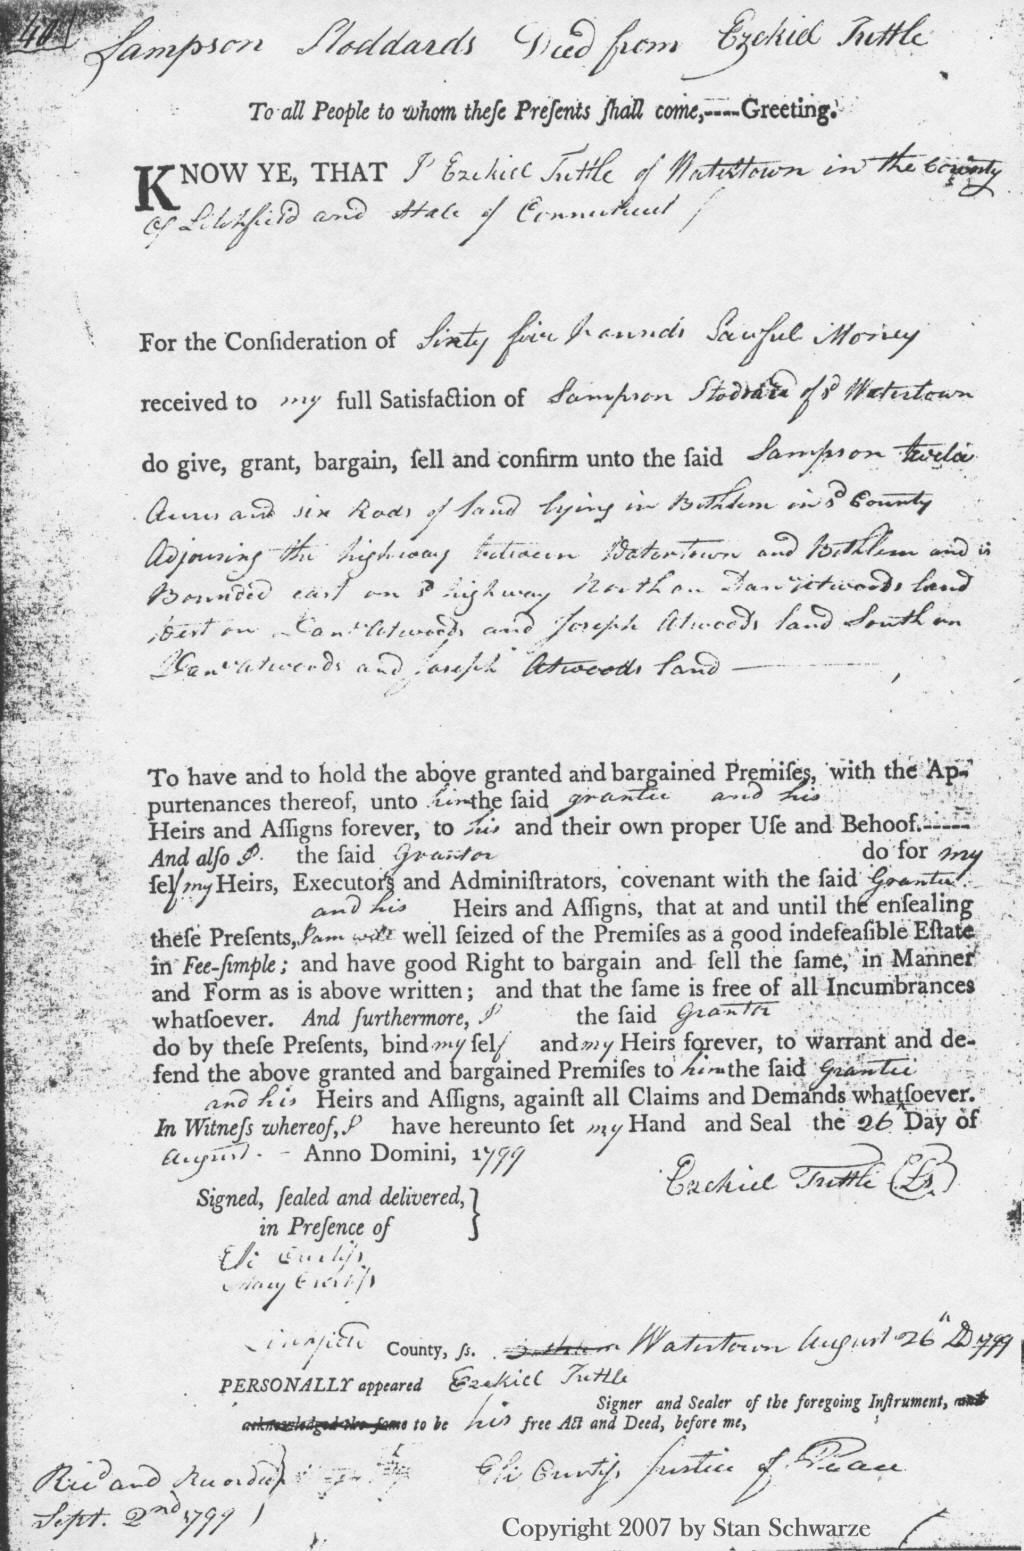 Sampson Stoddards Deed from Ezekiel Tuttle
To all People to whom theſe Preſents ſhall come,----Greeting.
KNOW YE, THAT I Ezekiel Tuttle of Watertown in the County
of Litchfield and State of Connecticut
For the Conſideration of Sixty five pounds Lawful Money
received to my full Satisfaction of Sampson Stoddard of sd Watertown
do give, grant, bargain, ſell and confirm unto the ſaid Sampson twelve
Acres and six Rods of land lying in Bethlem in sd County
Adjoining the highway between Watertown and Bethlem and is
Bounded east on sd highway North on Danll Atwoods land
West on Danll Atwoods and Joseph Atwoods land South on
Danll Atwoods and Joseph Atwoods land
To have and to hold the above granted and bargained Premiſes, with the Ap-
purtenances thereof, unto him the ſaid grantee and his
Heirs and Aſſigns forever, to his and their own proper Uſe and Behoof.-----
And alſo I the ſaid Grantor do for my
ſelf my Heirs, Executors and Adminiſtrators, covenant with the ſaid Grantee
and his Heirs and Aſſigns, that at and until the enſealing
theſe Preſents, I am well ſeized of the Premiſes as a good indefeaſible Eſtate
in Fee-ſimple; and have good Right to bargain and ſell the ſame, in Manner
and Form as is above written; and that the ſame is free of all Incumbrances
whatſoever. And furthermore, I the ſaid Grantor
do by theſe Preſents, bind my ſelf and my Heirs forever, to warrant and de-
fend the above granted and bargained Premiſes to him the ſaid Grantee
and his Heirs and Aſſigns, againſt all Claims and Demands whatſoever.
In Witneſs whereof, I have hereunto ſet my Hand and Seal the 26 Day of
August Anno Domini, 1799
Ezekiel Tuttle (Ls)
Signed, ſealed and delivered,}
in Preſence of
Eli Curtiss
Mary Curtiss
Litchfield County, ſs. Watertown August 26th AD 1799
PERSONALLY appeared Ezekiel Tuttle
Signer and Sealer of the foregoing Inſtrument, and
acknowledged the ſame to be his free Act and Deed, before me,
Eli Curtiss Justice of Peace
Recd and Recorded
Sept. 2nd 1799
Copyright 2007 by Stan Schwarze